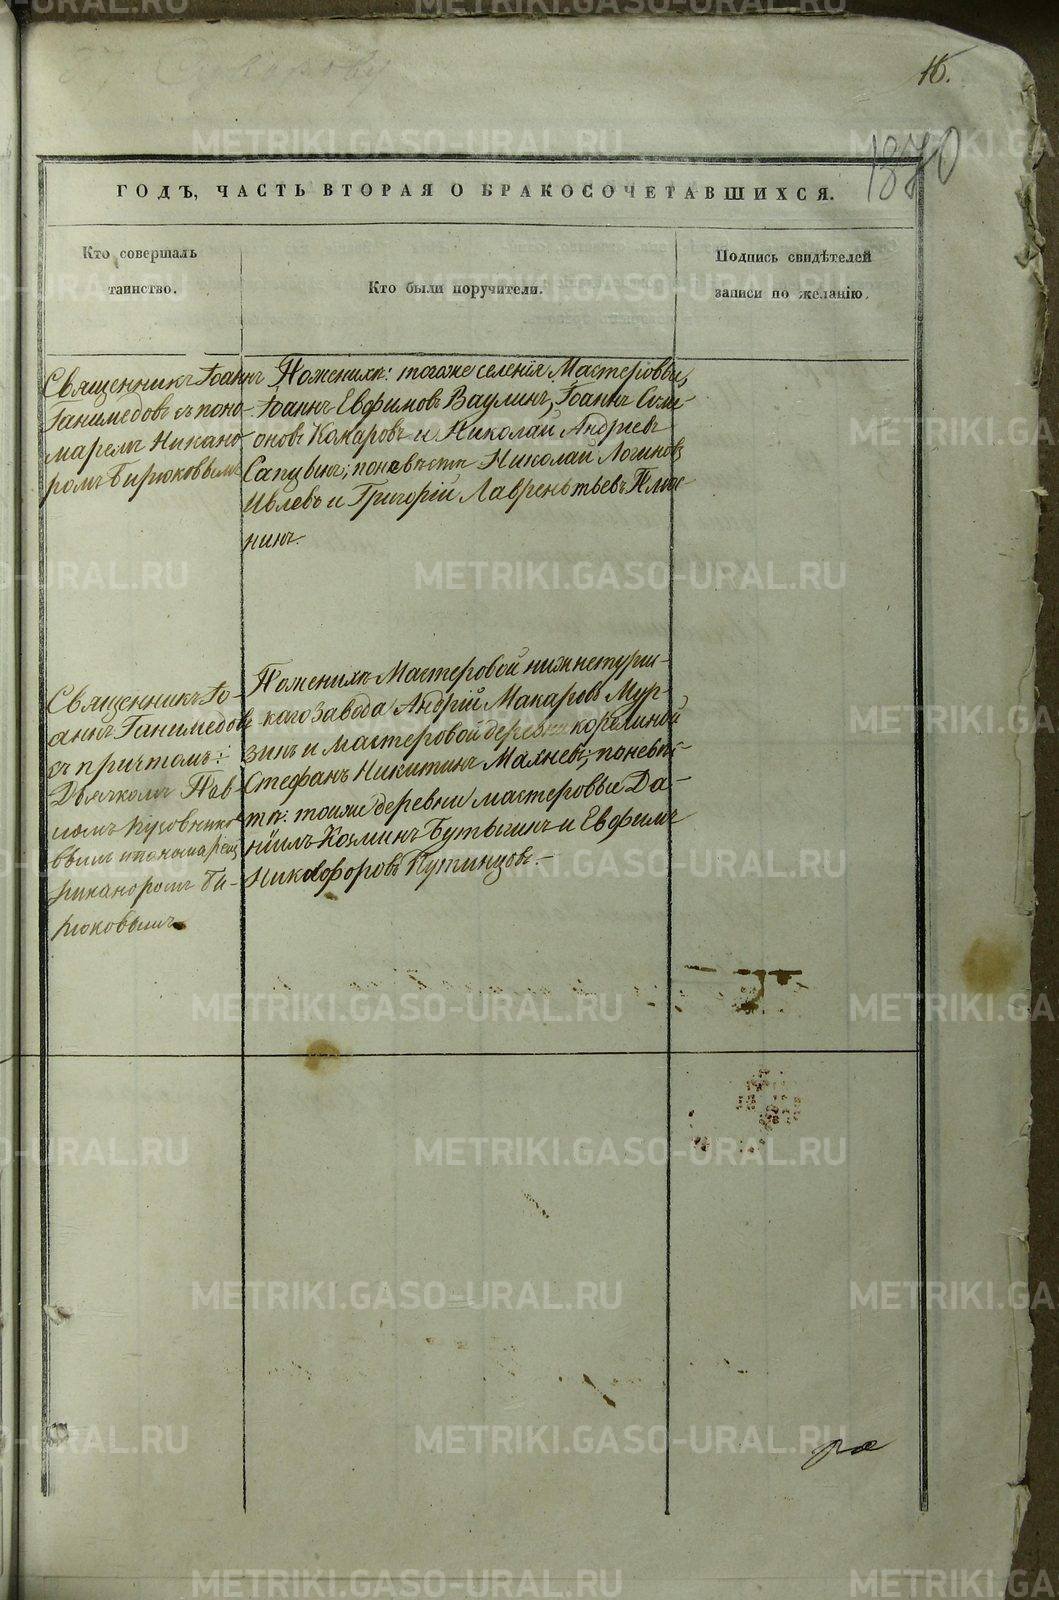 16.
1870
ГОДЪ, ЧАСТЬ ВТОРАЯ О БРАКОСОЧЕТАВШИХСЯ.
Кто совершалъ
таинство.
Кто были поручители.
Подпись свидѣтелей
записи по желанію.
Священникъ Іоаннъ
Ганимедовъ съ поно-
маремъ Никано-
ромъ Бирюковымъ
По женихѣ: тогоже селенія Мастеровые,
Іоаннъ Евфимовъ Ваулинъ, Іоаннъ Сими-
оновъ Комаровъ и Николай Андреевъ
Сапцвинъ; по невѣстѣ Николай Логиновъ
Ивлевъ и Григорій Лаврентьевъ
нинъ.
Священникъ Іо-
аннъ Ганимедовъ
съ причтомъ:
Дьячкомъ Пав-
ломъ Кузовнико-
вымъ и пономаремъ
Никаноромъ Би-
рюковымъ
По женихѣ Мастеровой нижнетурин-
скаго завода Андрей Макаровъ Мур-
зинъ и мастеровой деревни корелиной
Стефанъ Никитинъ Махневъ; по невѣс-
тѣ: тоиже деревни мастеровые Да-
ніилъ Козминъ Бутыгинъ и Евфимъ
Никифоровъ Путимцовъ.
METRIKI.GASO-URAL.RU